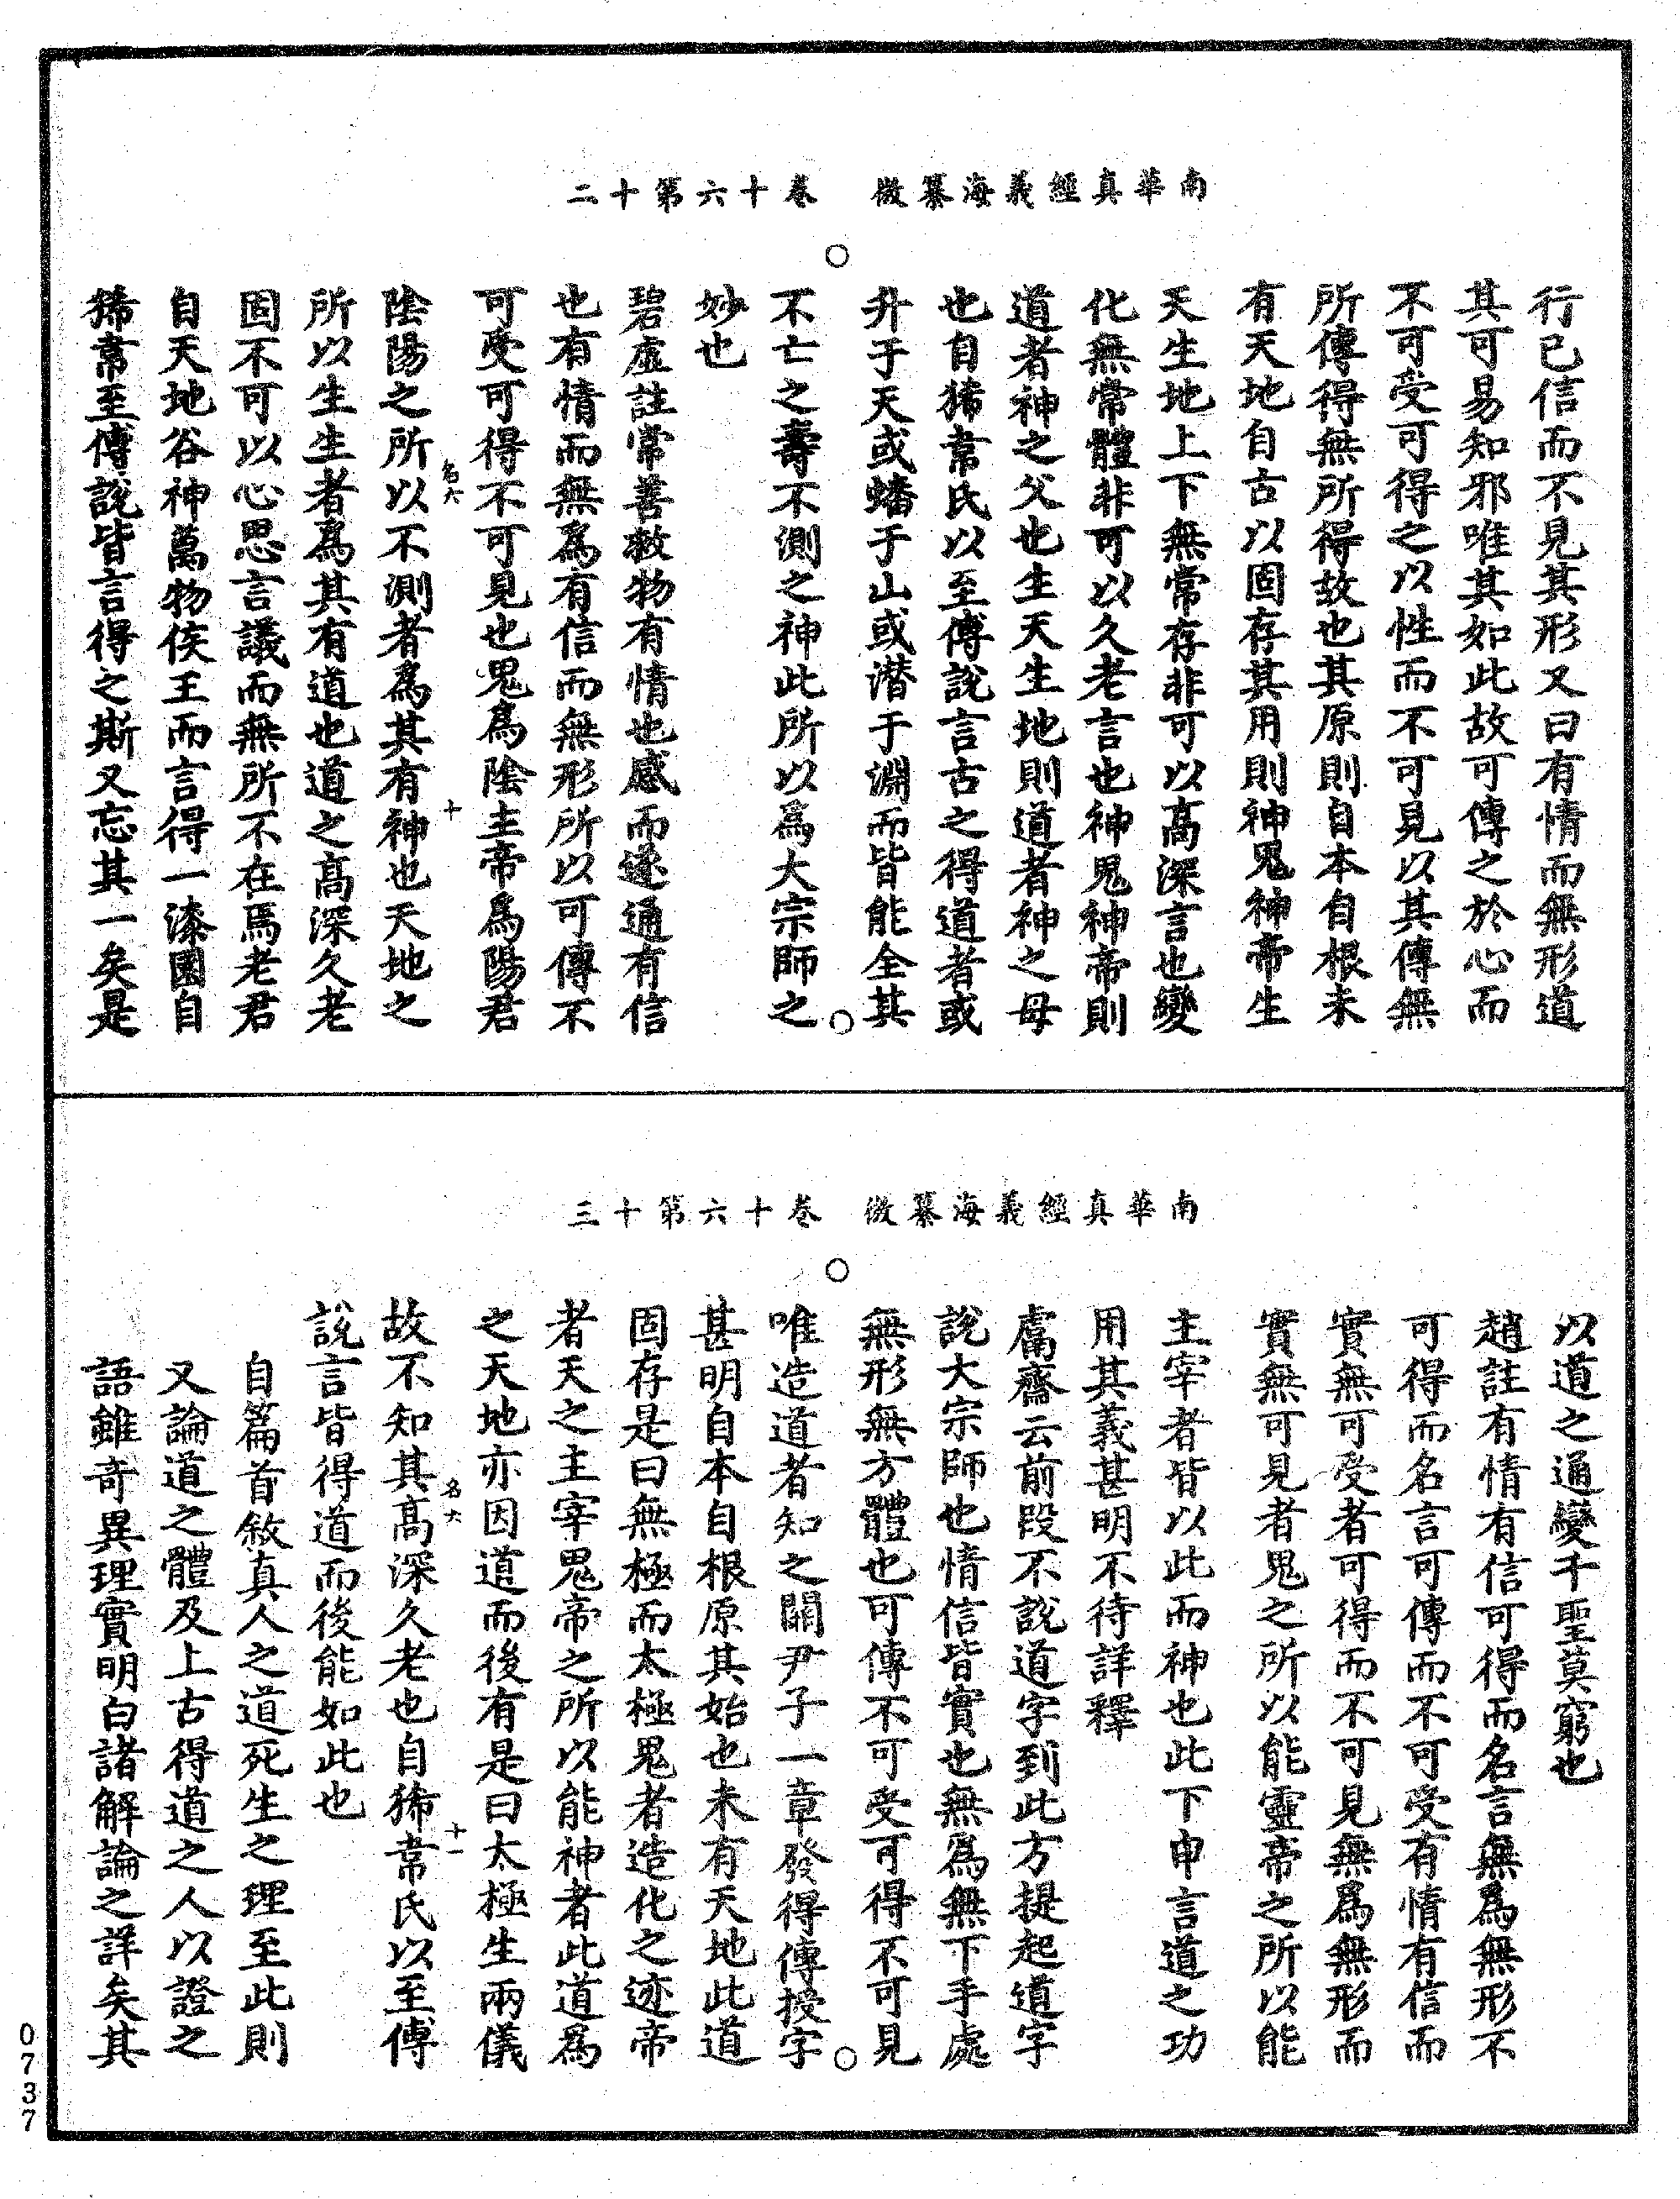 南華真經義海纂微　卷十六第十二
行已信而不見其形又曰有情而無形道
其可易知邪唯其如此故可傳之於心而
不可受可得之以性而不可見以其傳無
所傳得無所得故也其原則自本自根未
有天地自古以固存其用則神鬼神帝生
天生地上下無常存非可以高深言也變
化無常體非可以久老言也神鬼神帝則
道者神之父也生天生地則道者神之母
也自狶韋氏以至傅說言古之得道者或
升于天或蟠于山或潜于淵而皆能全其
不亡之壽不測之神此所以爲大宗師之
妙也
碧虛註常善救物有情也感而遂通有信
也有情而無爲有信而無形所以可傳不
可受可得不可見也鬼爲陰主帝爲陽君
陰陽之所以不測者爲其有神也天地之
名六
十
所以生生者爲其有道也道之高深久老
固不可以心思言議而無所不在焉老君
自天地谷神萬物侯王而言得一漆園自
狶韋至傅說皆言得之斯又忘其一矣是
南華真經義海纂微　卷十六第十三
以道之通變千聖莫窮也
趙註有情有信可得而名言無爲無形不
可得而名言可傳而不可受有情有信而
實無可受者可得而不可見無爲無形而
實無可見者鬼之所以能靈帝之所以能
主宰者皆以此而神也此下申言道之功
用其義甚明不待詳釋
鬳齋云前段不說道字到此方提起道字
說大宗師也情信皆實也無爲無下手處
無形無方體也可傳不可受可得不可見
唯造道者知之關尹子一章發得傳授字
甚明自本自根原其始也未有天地此道
固存是曰無極而太極鬼者造化之迹帝
者天之主宰鬼帝之所以能神者此道爲
之天地亦因道而後有是曰太極生兩儀
故不知其高深久老也自狶韋氏以至傅
名六
十一
說言皆得道而後能如此也
自篇首敘真人之道死生之理至此則
又論道之體及上古得道之人以證之
語雖奇異理實明白諸解論之詳矣其
0737